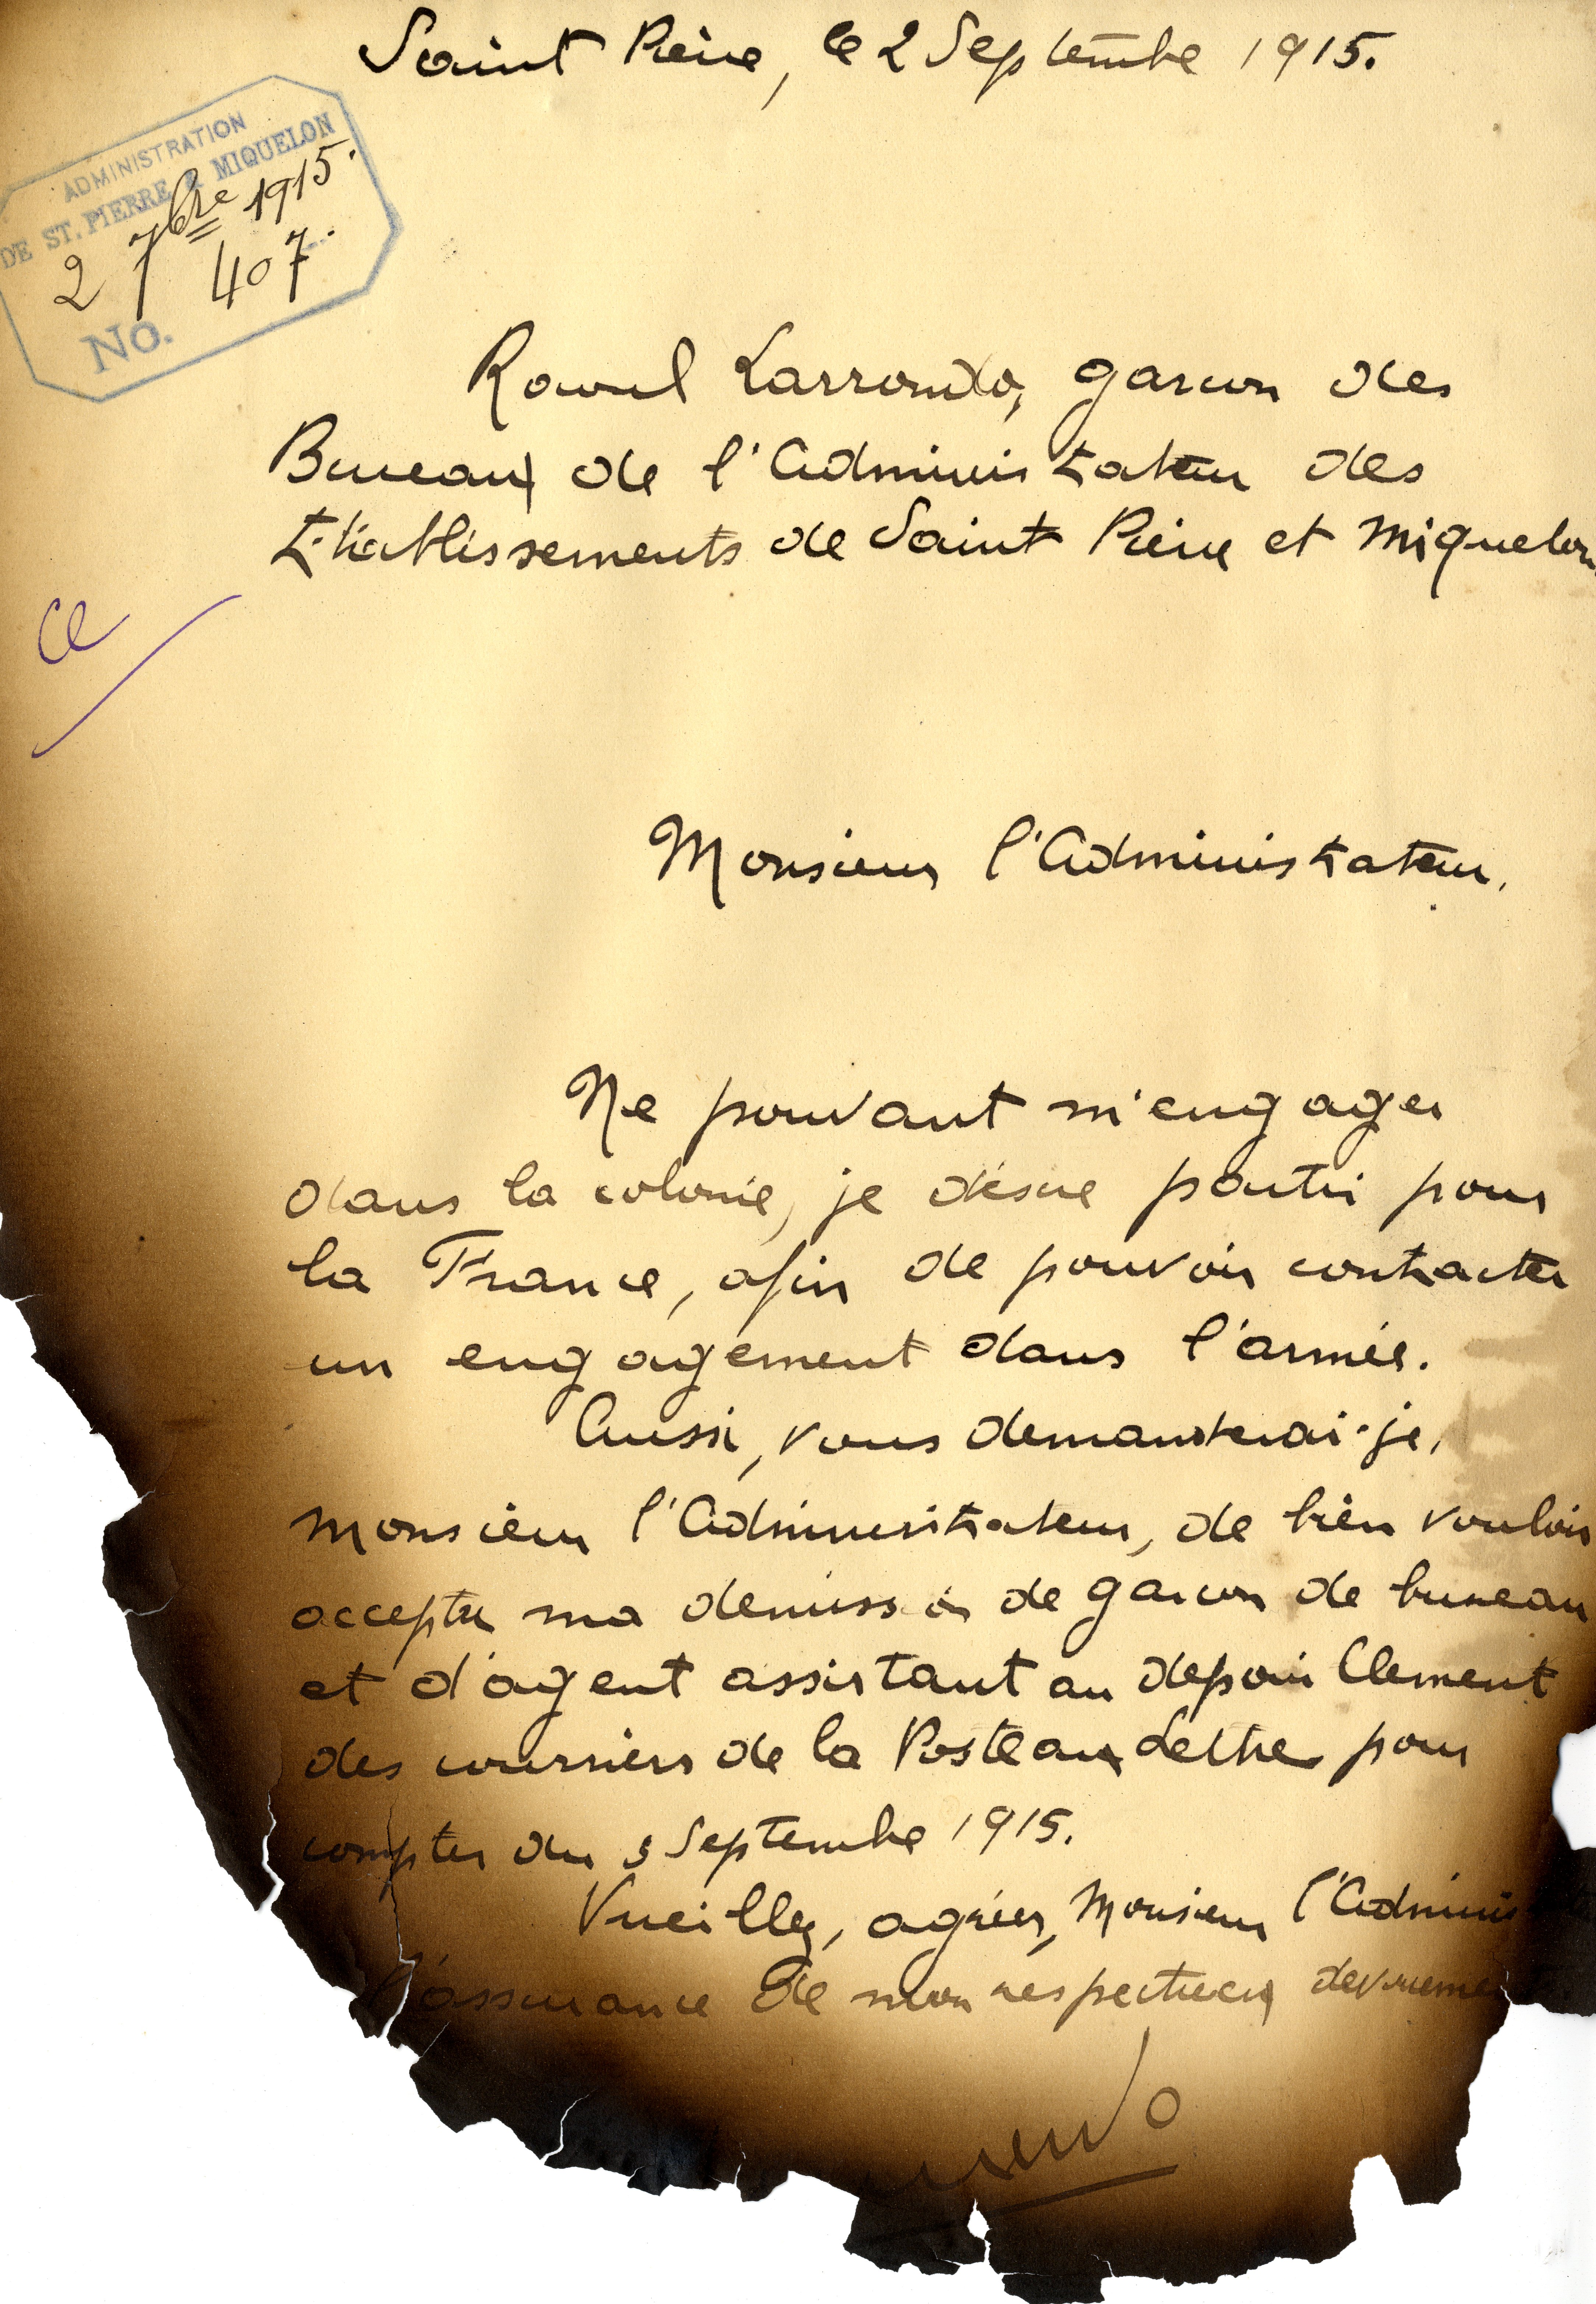 Saint Pierre, le 2 Septembre 1915.
ADMINISTRATION
DE ST. PIERRE & MIQUELON
2 7bre 1915.
407
No.
Raoul Larrondo, garcon des
Bureaux de l'Administrateur des
Etablissements de Saint Pierre et Miquelon
Monsieur l'Administrateur,
Ne pouvant m'engager
dans la colonie, je désire partir pour
la France, afin de pouvoir contracter
un engagement dans l'armée.
Aussi, vous demanderai-je,
Monsieur l'Administrateur, de bien vouloir
accepter ma demission de garcon de bureau
et d'agent assistant au depouillement
des courriers de la Poste aux Lettres pour
compter du 3 Septembre 1915.
Vueillez, agréer, Monsieur l'Adminis
l'assurance de mon respectueux devoueme